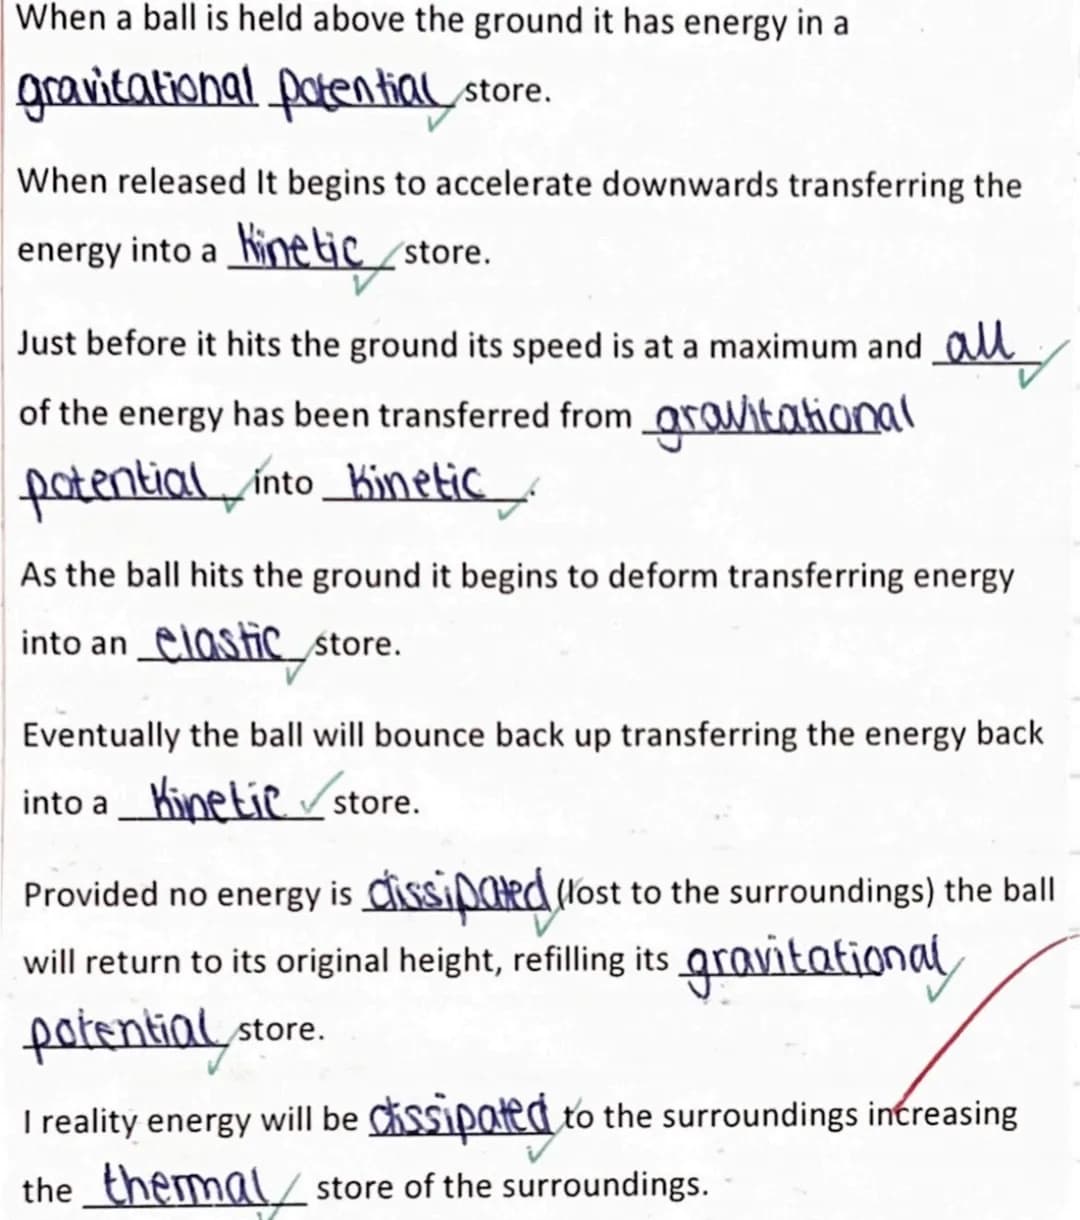 When a ball is held above the ground it has energy in a
gravitational potential store.
When released It begins to accelerate downwards transferring the
energy into a kinetic store.
Just before it hits the ground its speed is at a maximum and all
of the energy has been transferred from gravitational
potential into kinetic.
As the ball hits the ground it begins to deform transferring energy
into an elastic store.
Eventually the ball will bounce back up transferring the energy back
into a kinetic store.
Provided no energy is dissipated (lost to the surroundings) the ball
will return to its original height, refilling its gravitational
potential store.
I reality energy will be dissipated to the surroundings increasing
the thermal store of the surroundings.